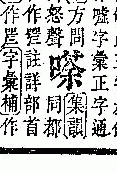 字彙正字通
方問
集韻
怒聲
同都
作
註詳部首
作
字彙補作